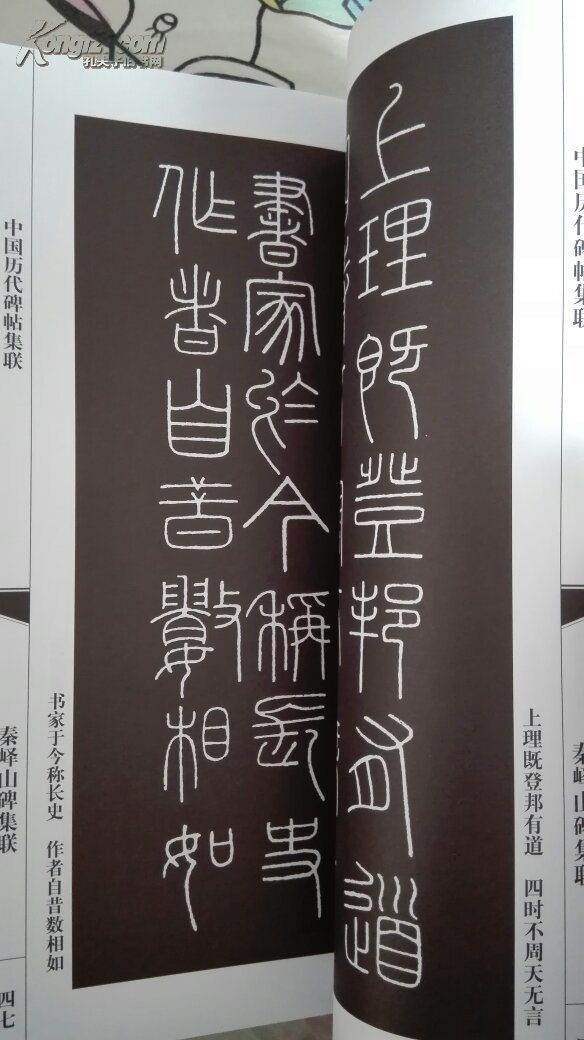 Kongfz.com
孔夫子旧书网
中国历代碑帖集联
秦峄山碑集联
上理既登邦有道
上理既登邦有道 四时不周天无言
書家於今稱長史
作者自昔數相如
书家于今称长史 作者自昔数相如
中国历代碑帖集联
秦峄山碑集联
四七